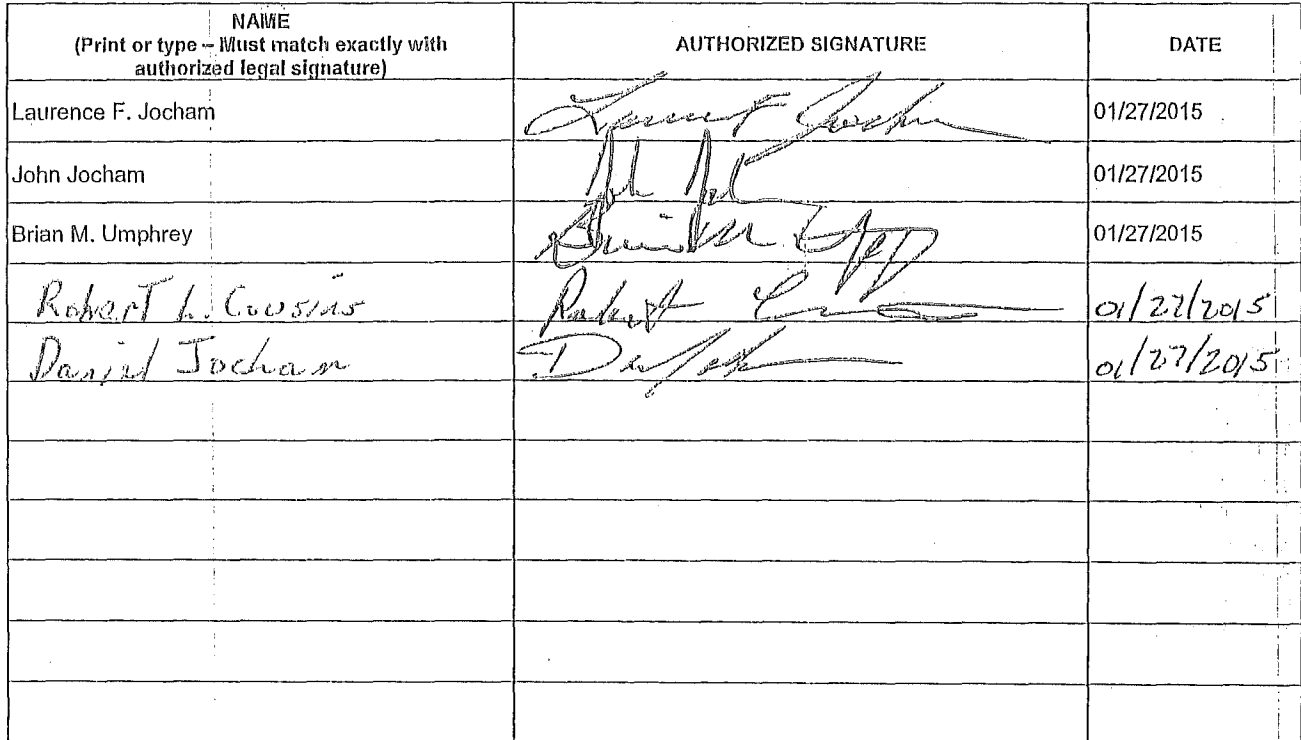 NAME
(Print or type – Must match exactly with
authorized legal signature)
AUTHORIZED SIGNATURE
DATE
Laurence F. Jocham
01/27/2015
John Jocham
01/27/2015
Brian M. Umphrey
01/27/2015
Robert L. Cousins
Robert
01/27/2015
Daniel Jocham
01/27/2015